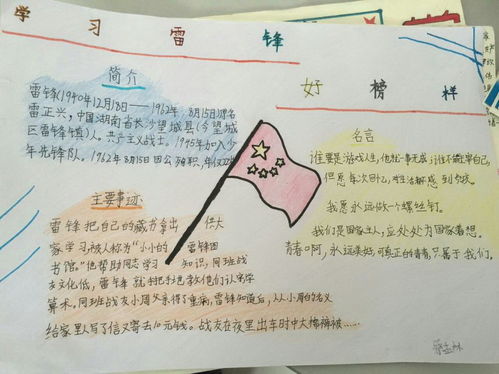 学习雷锋
好榜样
简介
雷锋(1940年12月18日——1962年8月15日)原名
雷正兴,中国湖南省长沙望城县(今望城
区雷锋镇)人。共产主义战士。1945年加入少
年先锋队。1962年8月15日因公殉职,年仅22岁
主要事迹
雷锋把自己的藏书拿出供大
家学习被人称为“小小的雷锋图
书馆。”他帮助同志学习知识,同班战
友文化低,雷锋就手把手地教他们认字学
算术。同班战友小周父亲得了重病,雷锋知道后,从小周的名义
给家里人写了信又寄去10元钱。战友在夜里出车时中大棉裤被……
名言
谁要是游戏人生,他就一事无成,谁不能主宰自己,
但愿每次回忆,对生活都不感到负疚。
我愿永远做一个螺丝钉。
我们是国家主人,应处处为国家着想。
青春啊,永远美好,可真正的青春,只属于我们。